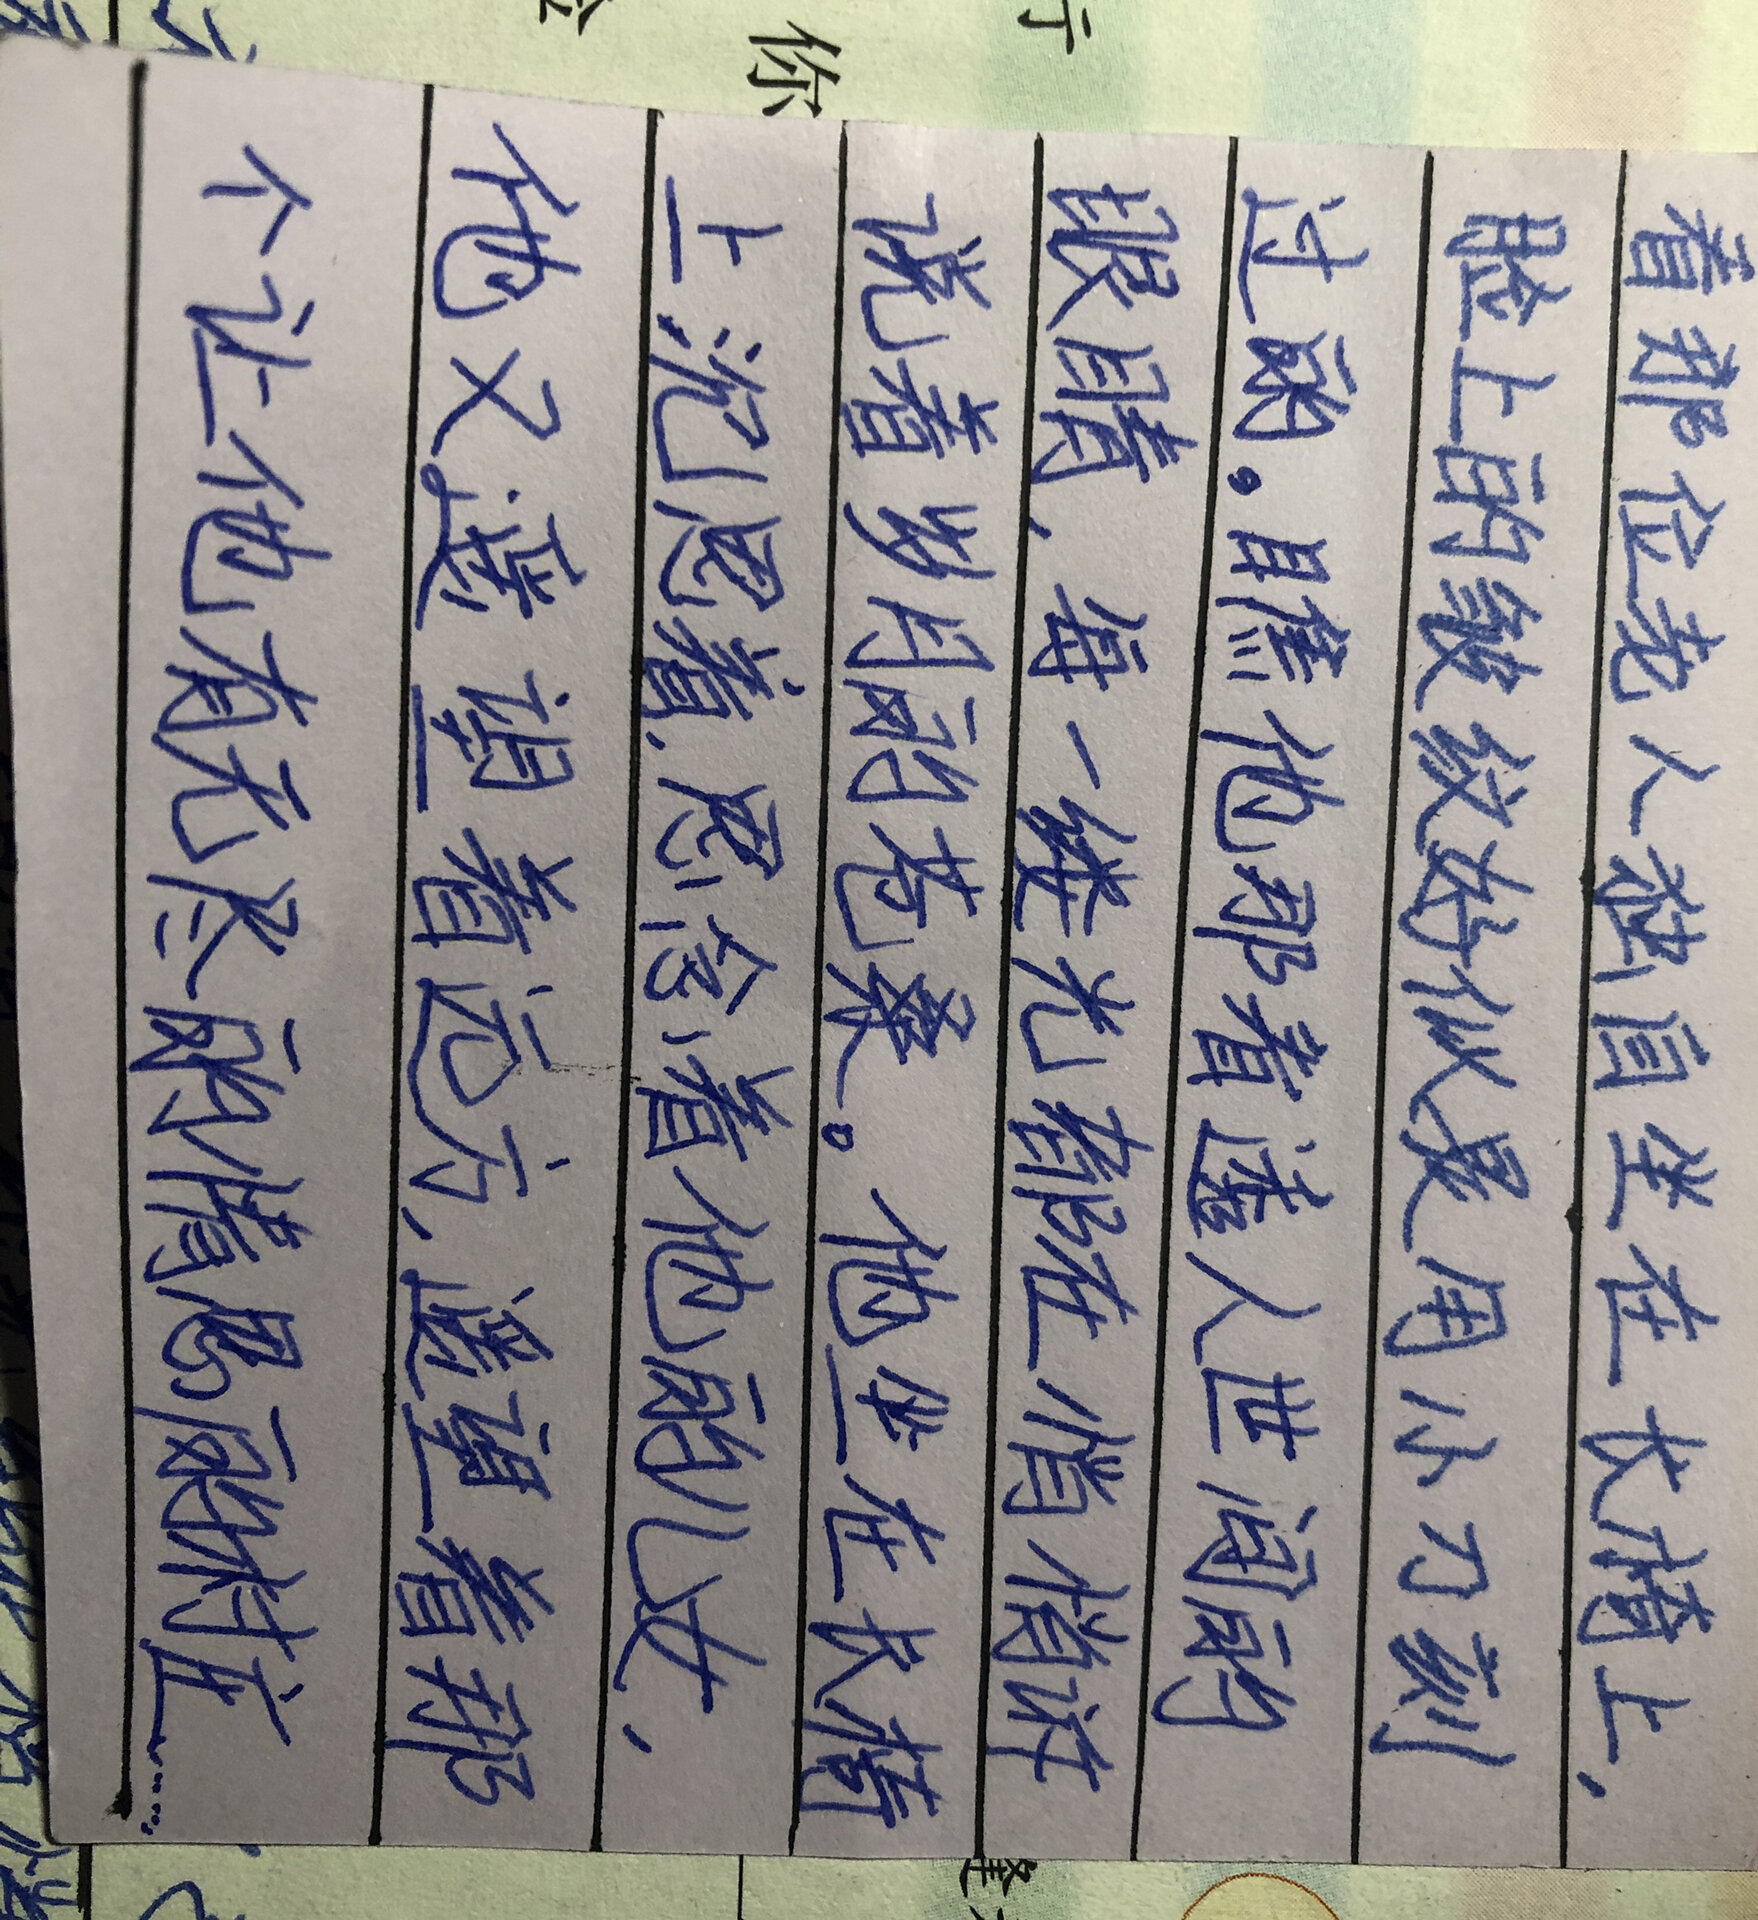 看那位老人独自坐在长椅上，
脸上的皱纹好似是用小刀刻
过的。瞧他那看人世间的
眼睛，每一缕光都在悄悄诉
说着岁月的苍桑。他坐在长椅
上沉思着，思念着他的儿女，
他又遥望着远方，遥望着那
个让他有无尽的情思的村庄……
你